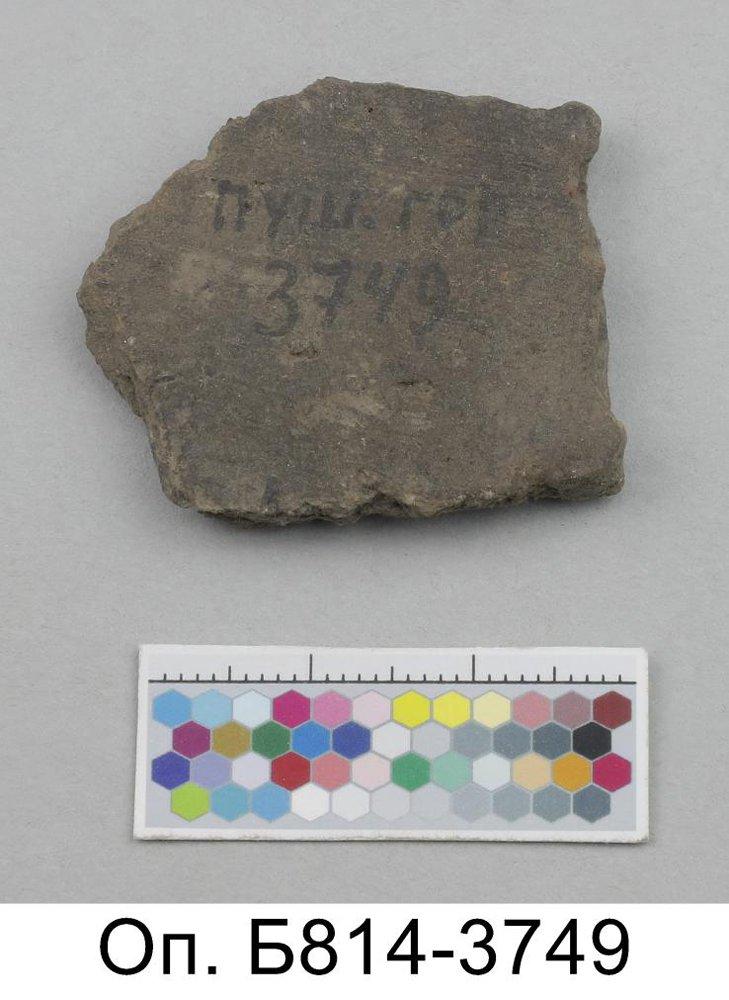 пуш. гор
3749
Оп. Б814-3749